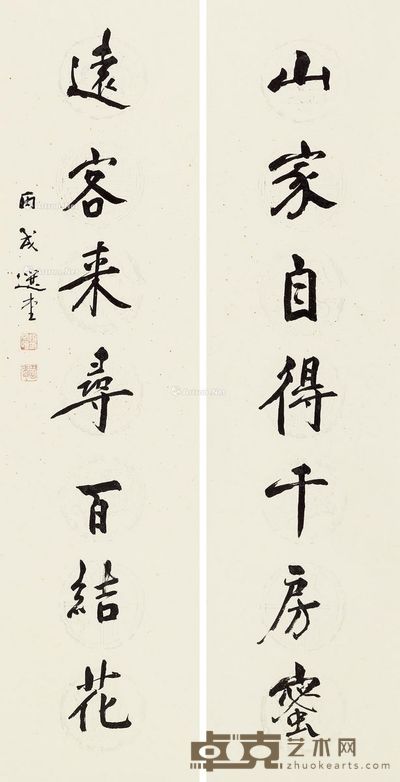 山家自得千房蜜
遠客来尋百結花
丙戌 選堂
卓克艺术网
www.zhuokearts.com